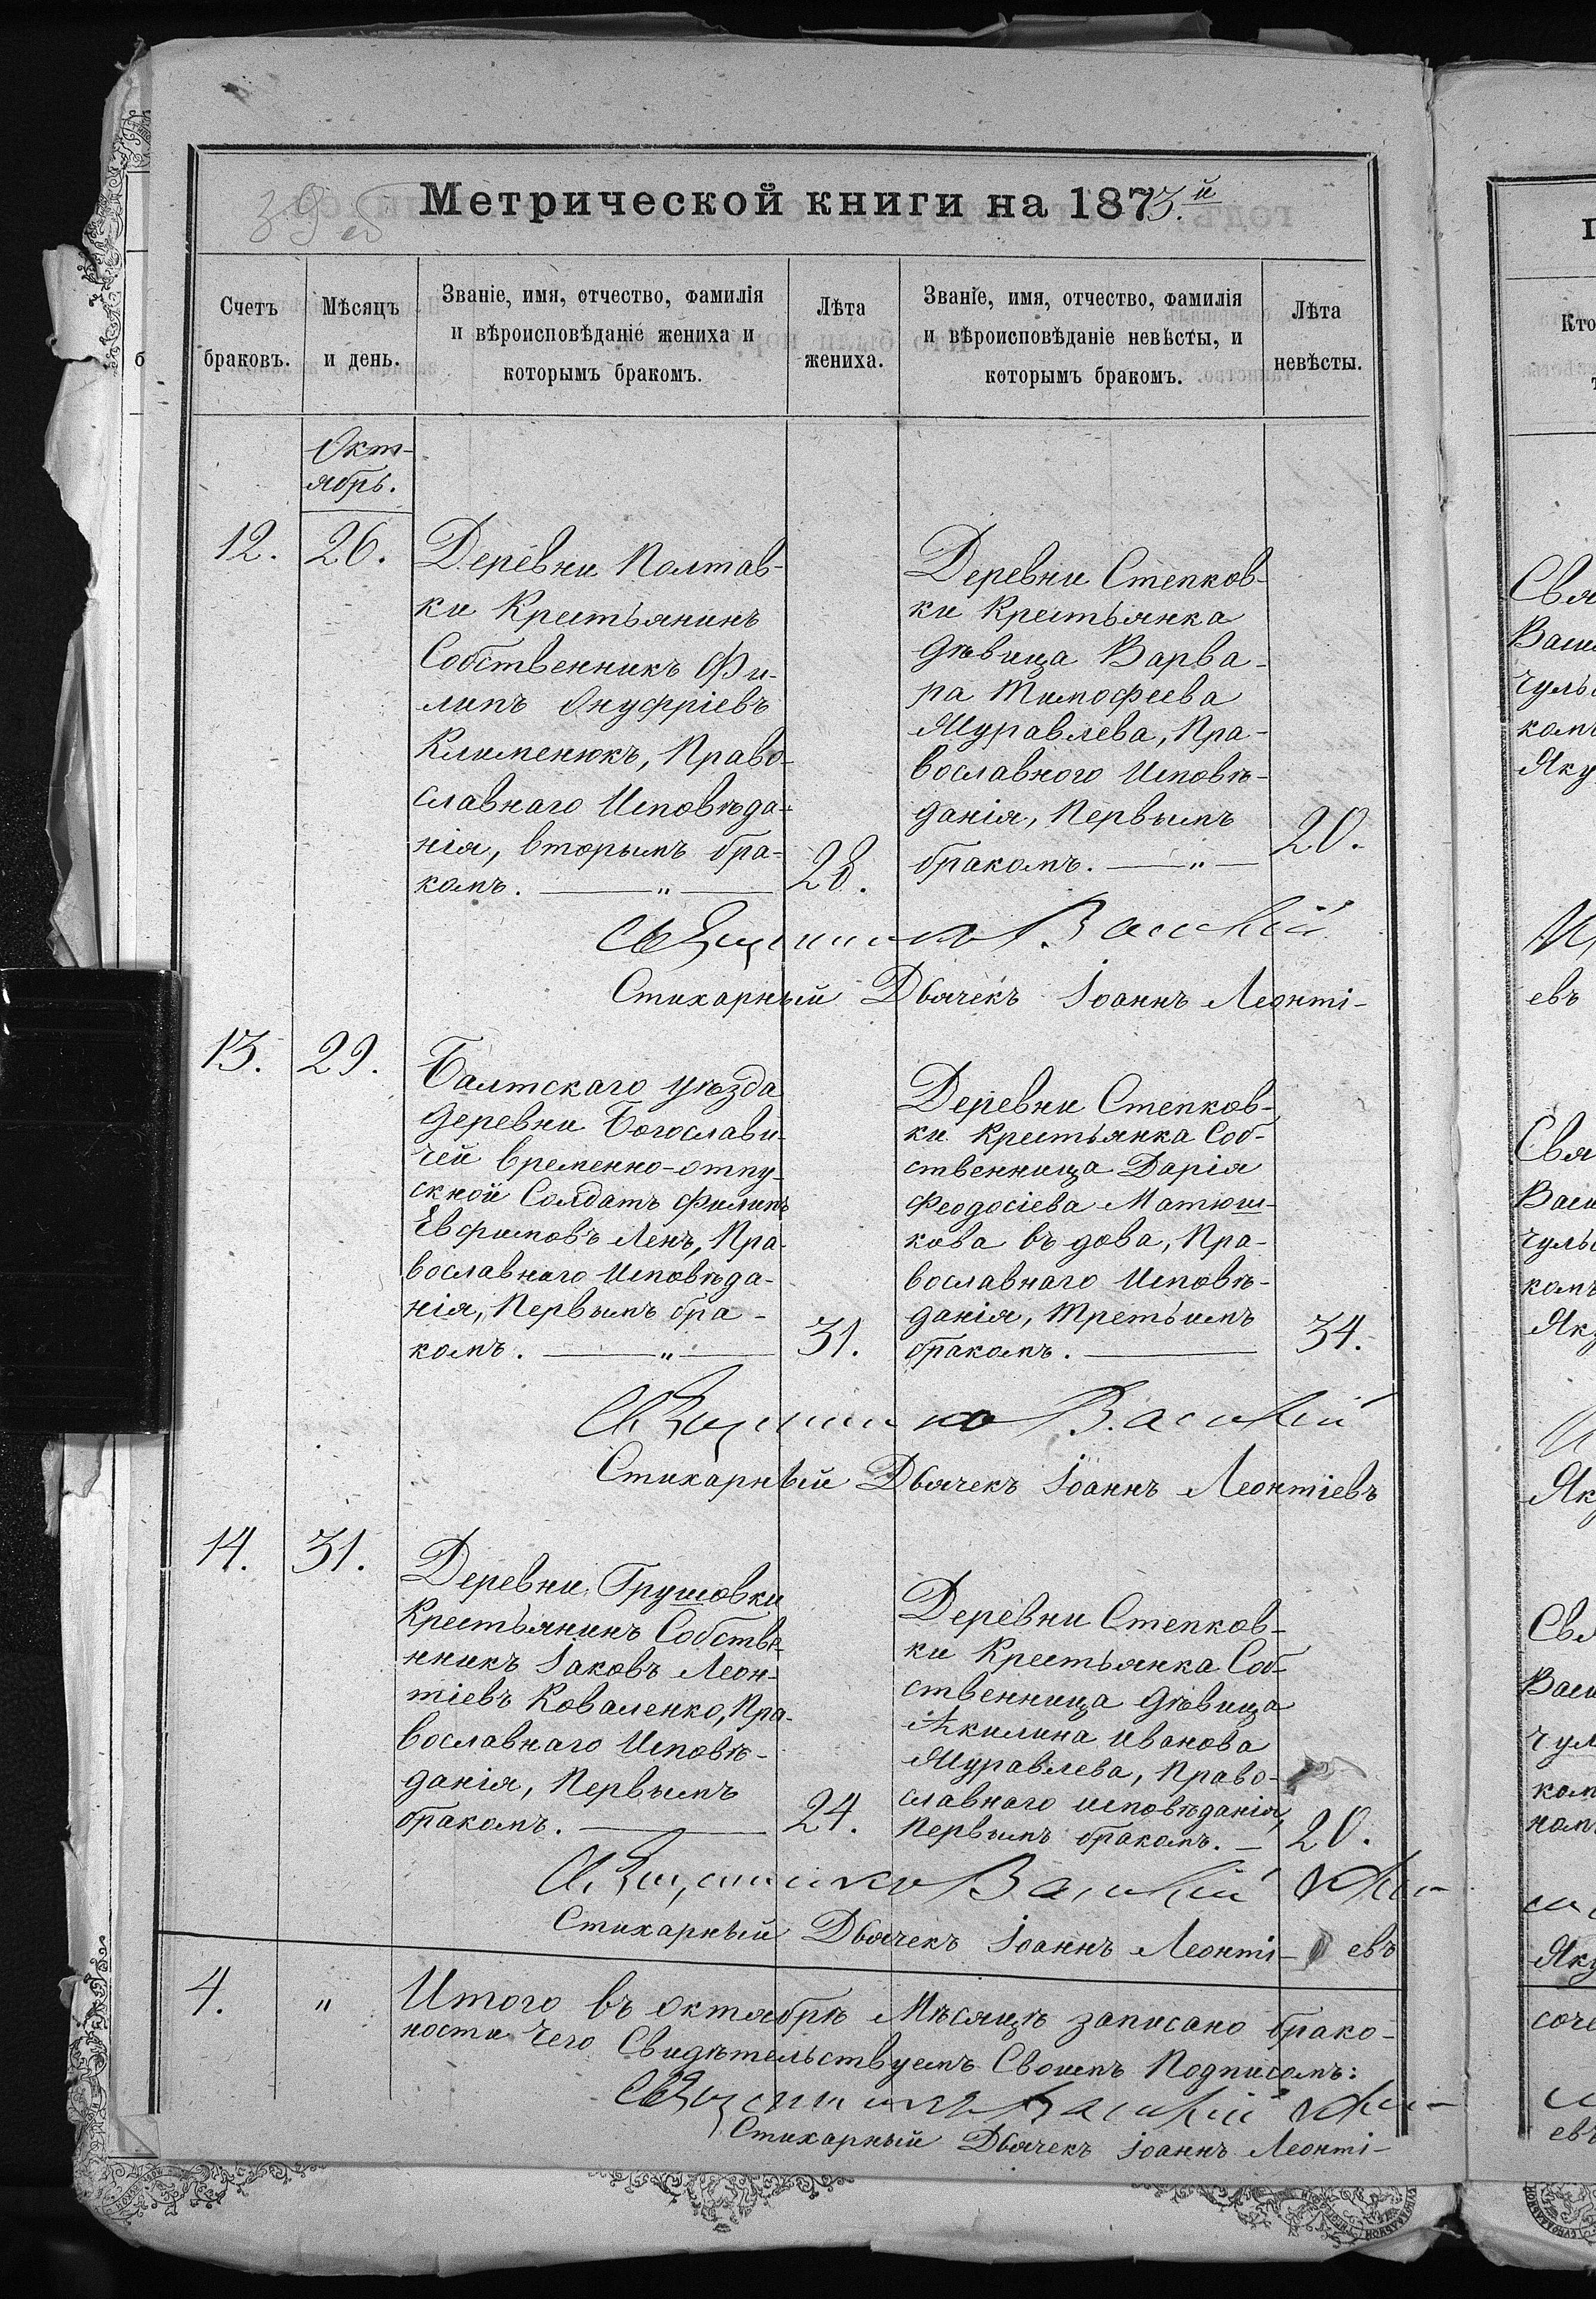 39 об
Метрической книги на 1873.й
Счетъ браковъ.
Мѣсяцъ и день.
Званіе, имя, отчество, фамилія
и вѣроисповѣданіе жениха и
которымъ бракомъ.
Лѣта жениха.
Званіе, имя, отчество, фамилія
и вѣроисповѣданіе невѣсты, и
которымъ бракомъ.
Лѣта невѣсты.
Окт-
ябрь.
12.
26.
Деревни Полтав-
ки Крестьянинъ
Собственникъ Фи-
липъ Онуфріевъ
Клименюкъ, Право-
славнаго Исповѣда-
нія, вторымъ бра-
комъ. —„—
28.
Деревни Степков-
ки Крестьянка
дѣвица Варва-
ра Тимофеева
Муравлева, Пра-
вославного Исповѣ-
данія, Первымъ
бракомъ. —„—
20.
Священникъ Василій
Стихарный Дьячекъ Іоаннъ Леонті-
13.
29.
Балтскаго уѣзда
деревни Богослави-
чей временно-отпу-
скной Солдатъ Филипъ
Евфимовъ Ленъ, Пра-
вославнаго Исповѣда-
нія, Первымъ бра-
комъ. —„—
31.
Деревни Степков-
ки Крестьянка Соб-
ственница Дарія
Феодосіева Матюш-
кова въ дова, Пра-
вославнаго Исповѣ-
данія, Третьимъ
бракомъ. —
34.
Священникъ Василій
Стихарный Дьячекъ Іоаннъ Леонтіевъ
14.
31.
Деревни Грушовки
Крестьянинъ Собстве-
нникъ Іаковъ Леон-
тіевъ Коваленко, Пра-
вославнаго Исповѣ-
данія, Первымъ
бракомъ. —
24.
Деревни Степков-
ки Крестьянка Соб-
ственница дѣвица
Акилина Иванова
Муравлева, Право-
славнаго исповѣданія,
Первымъ бракомъ. —
20.
Священникъ Василій
Стихарный Дьячекъ Іоаннъ Леонті- евъ
4.
„
Итого въ октябрѣ Мѣсяцѣ записано брако-
ности чего Свидѣтельствуемъ Своимъ Подписомъ:
Священникъ Василій
Стихарный Дьячекъ Іоаннъ Леонті-